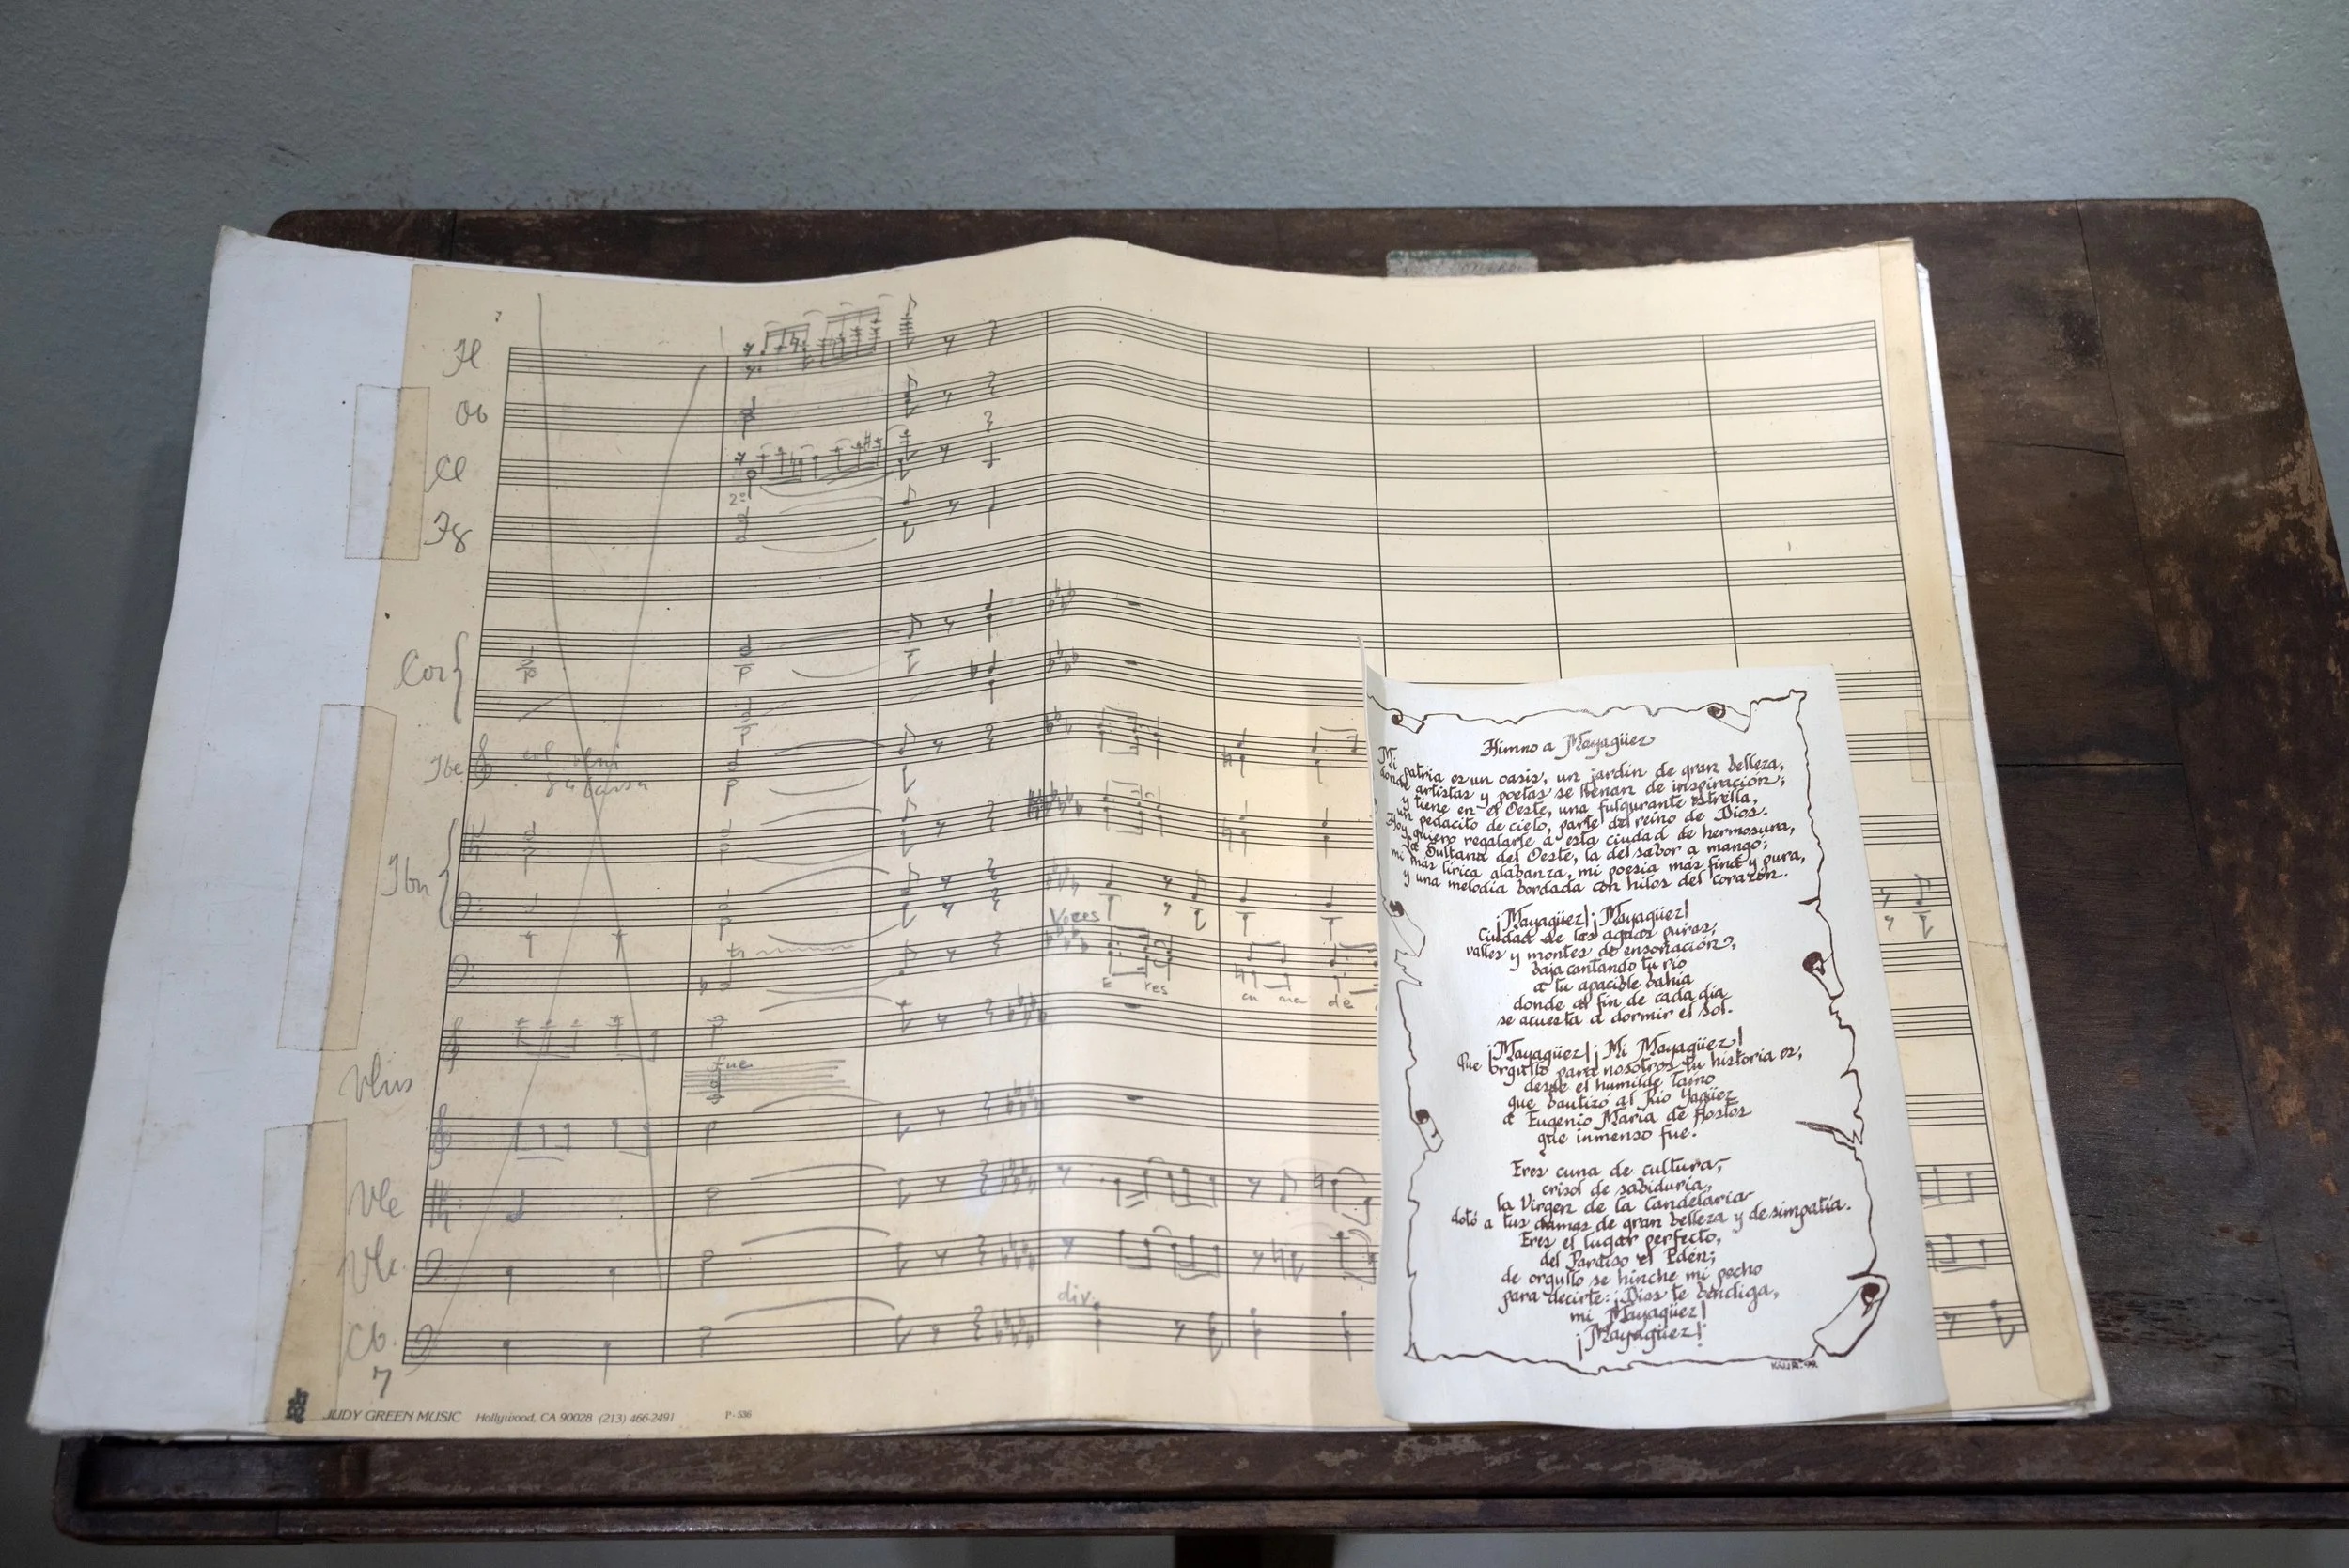 Fl
Ob
Cl
Fg
2º
Cor
Tbe
col
Tbn
tr
Voces
E res
cu na de
Vlns
Vle
Vlc.
div.
Cb.
7
JUDY GREEN MUSIC Hollywood, CA 90028 (213) 466-2491 P-536
Himno a Mayagüez
Mi patria es un oasis, un jardín de gran belleza,
donde artistas y poetas se llenan de inspiración;
y tiene en el Oeste, una fulgurante estrella,
un pedacito de cielo, parte del reino de Dios.
Hoy quiero regalarle a esta ciudad de hermosura,
La Sultana del Oeste, la del sabor a mango;
mi más lírica alabanza, mi poesía más fina y pura,
y una melodía bordada con hilos del corazón.
¡Mayagüez! ¡Mayagüez!
Ciudad de las aguas puras,
valles y montes de ensoñación,
baja cantando tu río
a tu apacible bahía
donde al fin de cada día
se acuesta a dormir el sol.
¡Mayagüez! ¡Mi Mayagüez!
Que orgullo para nosotros tu historia es,
desde el humilde taíno
que bautizó al Río Yagüez
a Eugenio María de Hostos
que inmenso fue.
Eres cuna de cultura,
crisol de sabiduría,
la Virgen de la Candelaria
dotó a tus damas de gran belleza y de simpatía.
Eres el lugar perfecto,
del Paraíso el Edén;
de orgullo se hinche mi pecho
para decirte: ¡Dios te bendiga,
mi Mayagüez!
¡Mayagüez!